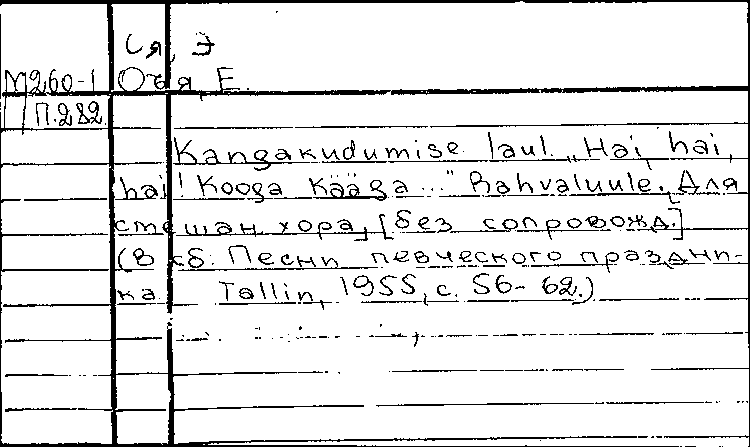 Ся, Э
М260-1 Оья, Е.
П.282
Kangakudumise laul. „Hai, hai,
hai! Kooga Kääga..." Rahvaluule. Для
смешан. хора, [без сопровожд.]
(В сб. Песни певческого праздни-
ка Tallin, 1955, с. 56-62.)